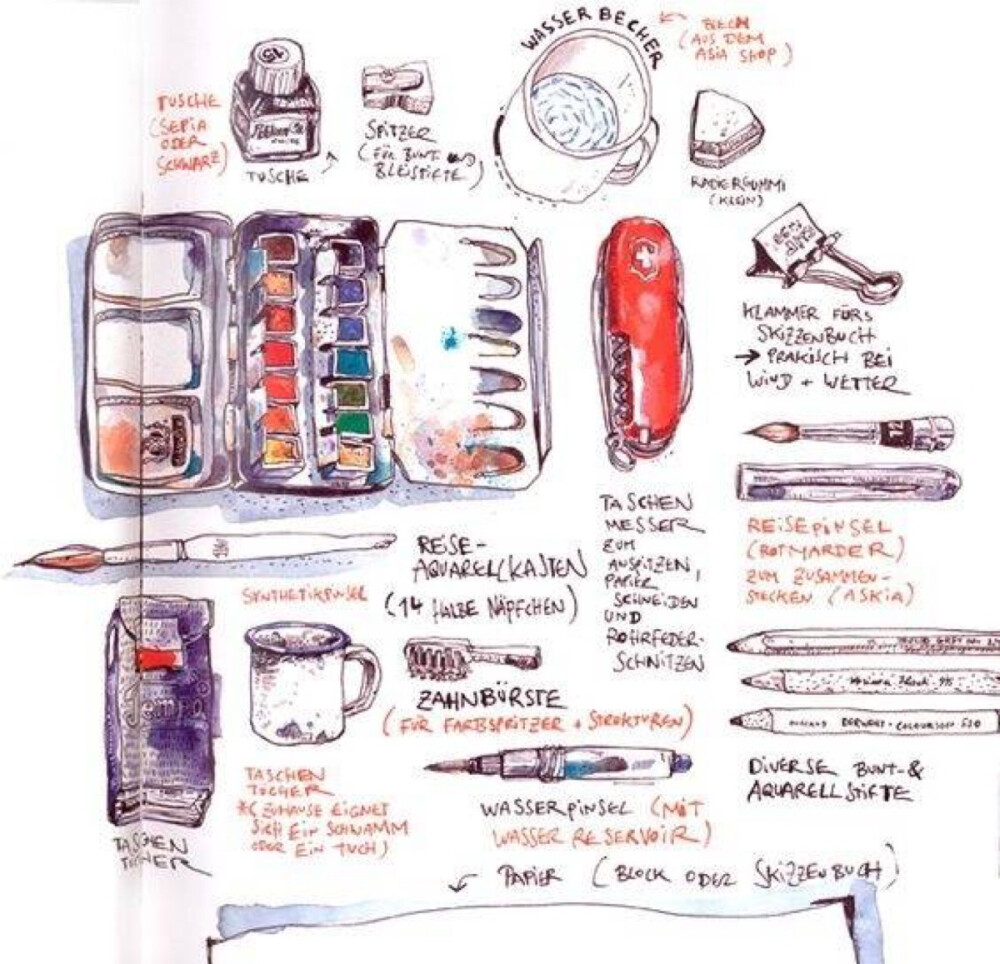 WASSERBECHER
BLECH
(AUS DEM
ASIA SHOP)
TUSCHE
(SEPIA
ODER
SCHWARZ)
TUSCHE
SPITZER
(FÜR BUNT UND
BLEISTIFTE)
RADIERGUMMI
(KLEIN)
KLAMMER FÜRS
SKIZZENBUCH
→ PRAKISCH BEI
WIND + WETTER
REISE-
AQUARELLKASTEN
(14 HALBE NÄPFCHEN)
SYNTHETIKPINSEL
TASCHEN
MESSER
ZUM
ANSPITZEN,
PAPIER
SCHNEIDEN
UND
ROHRFEDER-
SCHNITZEN
REISEPINSEL
(ROTMARDER)
ZUM ZUSAMMEN-
STECKEN (ASKIA)
Tempo
ZAHNBÜRSTE
(FÜR FARBSPRITZER + STRUKTUREN)
TASCHEN
TÜCHER
*(ZUHAUSE EIGNET
SICH EIN SCHWAMM
ODER EIN TUCH)
TASCHEN
TÜCHER
WASSERPINSEL (MIT
WASSER RESERVOIR)
DERWENT - COLOURSOFT
DIVERSE BUNT-&
AQUARELLSTIFTE
PAPIER (BLOCK ODER SKIZZENBUCH)